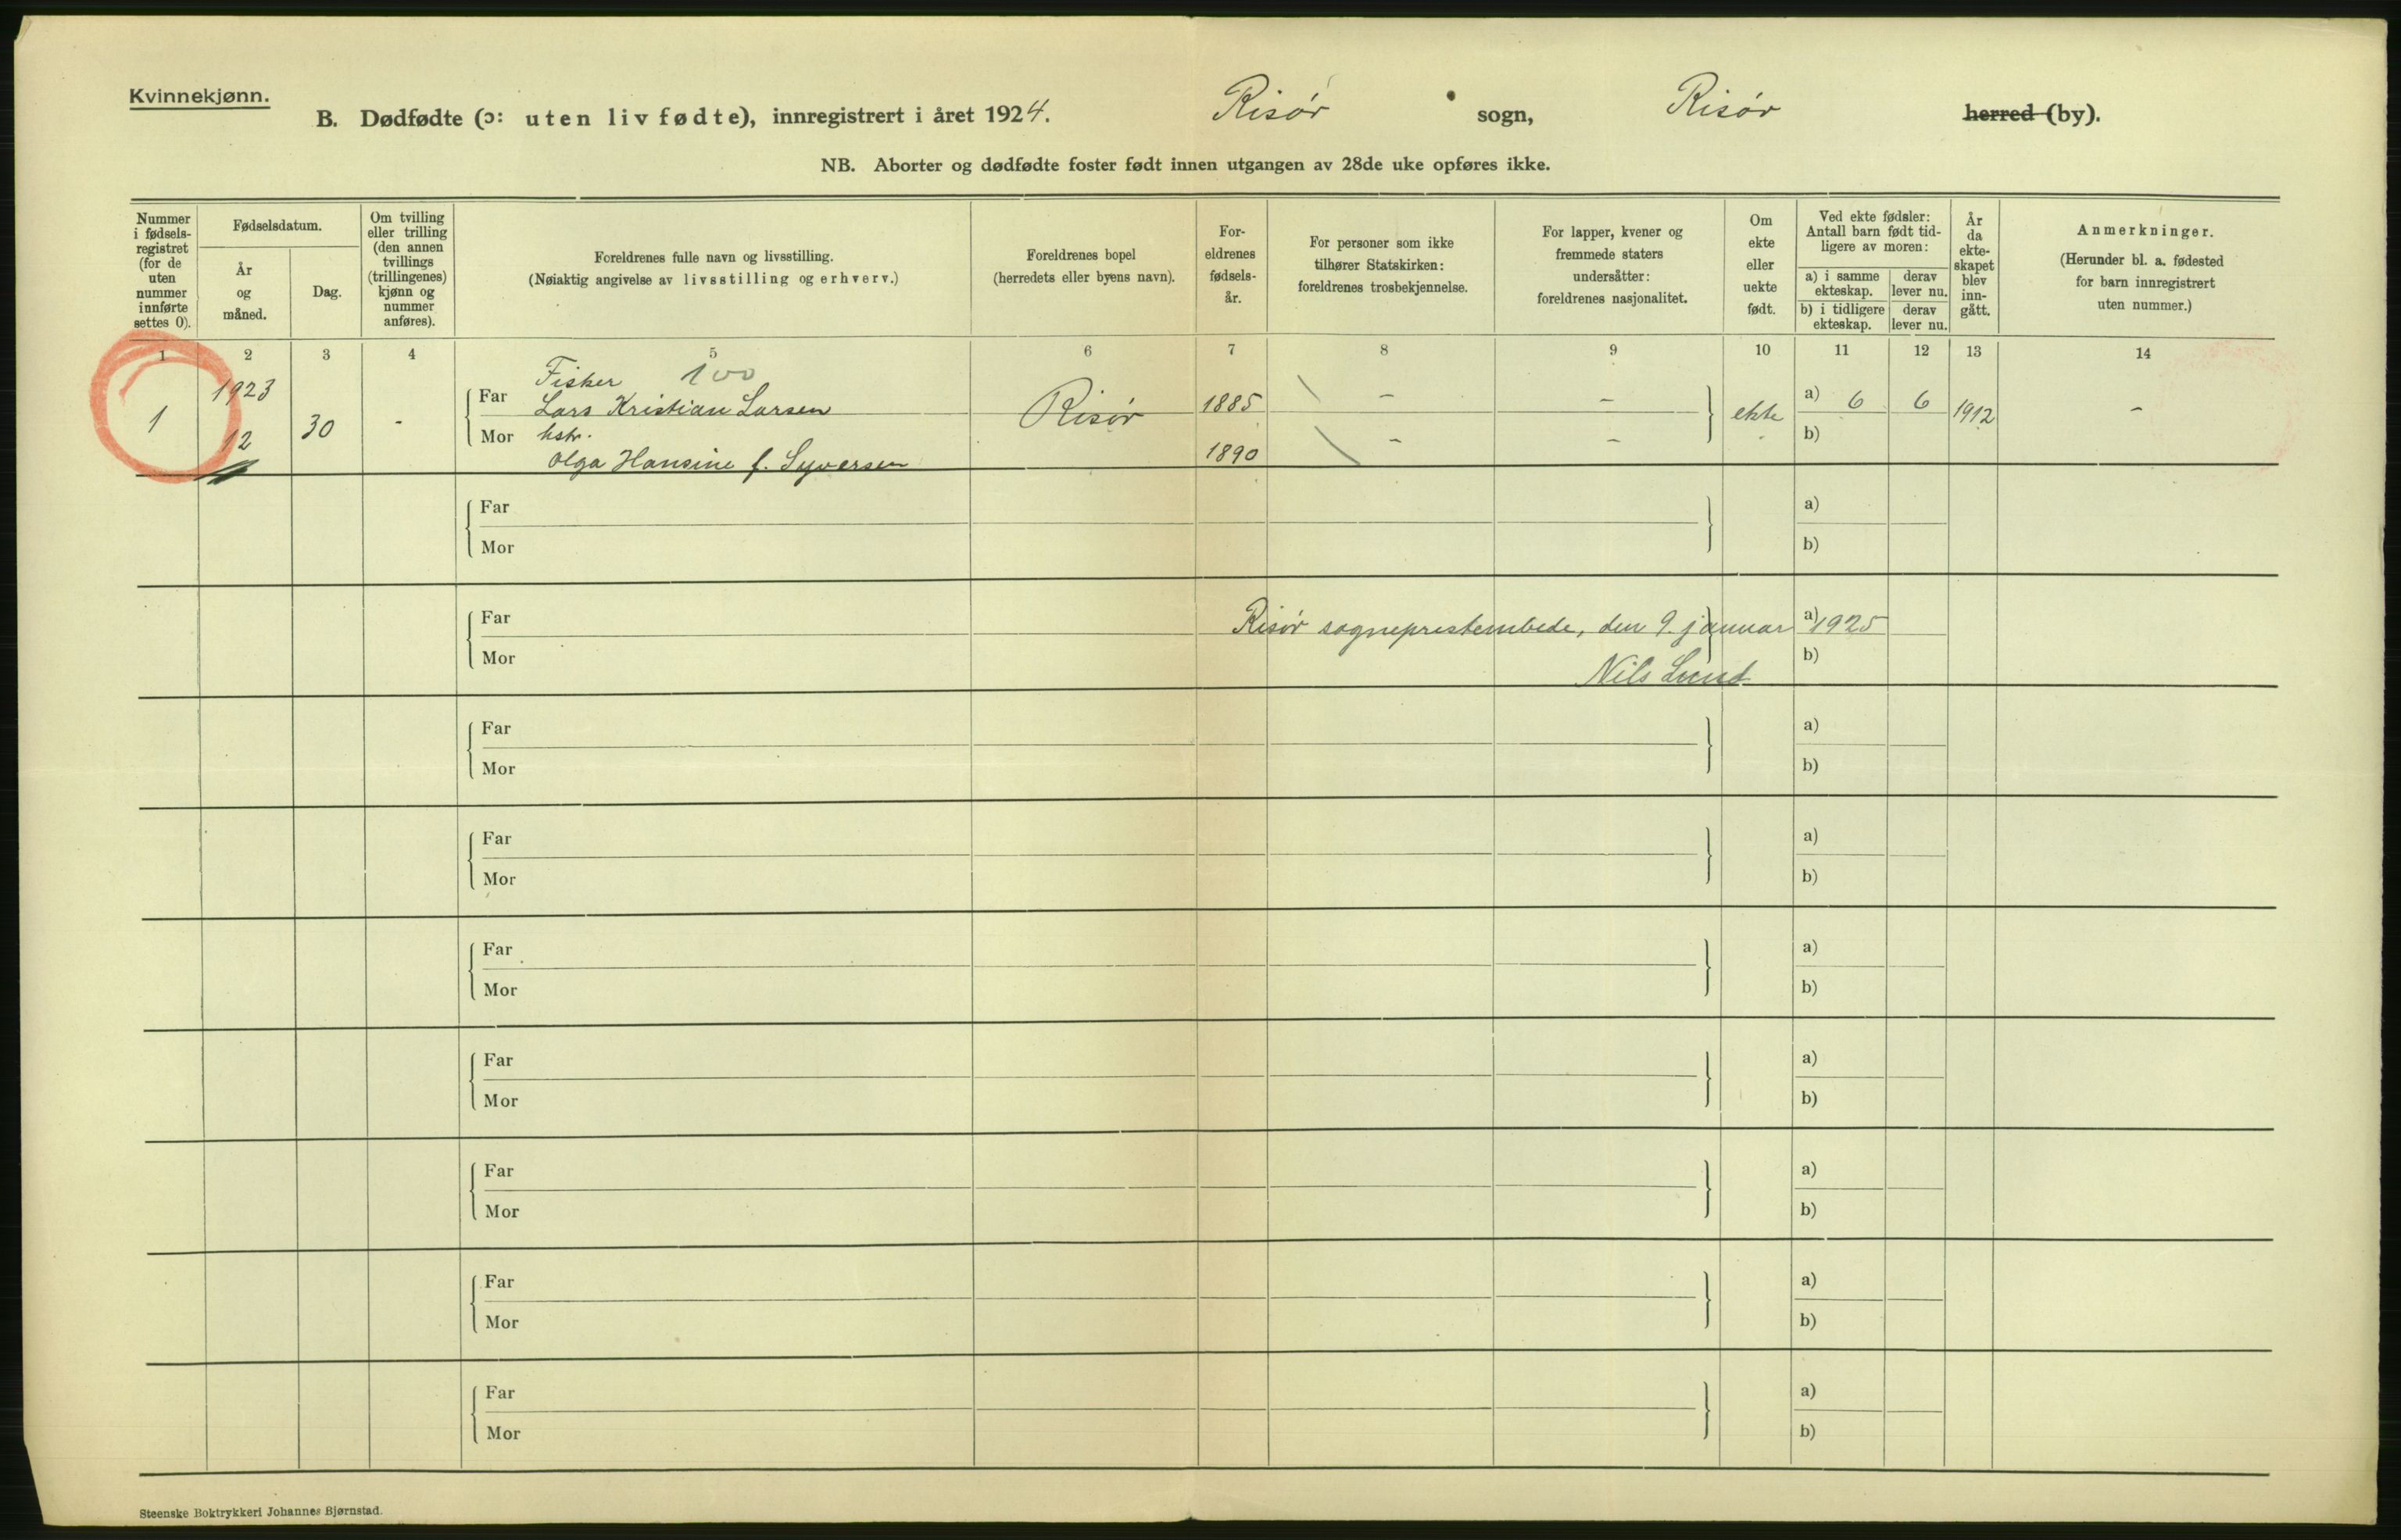 Kvinnekjønn.
B. Dødfødte (ɔ: uten liv fødte), innregistrert i året 1924. Risør sogn, Risør herred (by).
NB. Aborter og dødfødte foster født innen utgangen av 28de uke opføres ikke.
Nummer i fødsels-registret (for de uten nummer innførte settes 0).
Fødselsdatum.
År og måned.
Dag.
Om tvilling eller trilling (den annen tvillings (trillingenes) kjønn og nummer anføres).
Foreldrenes fulle navn og livsstilling.
(Nøiaktig angivelse av livsstilling og erhverv.)
Foreldrenes bopel
(herredets eller byens navn).
For-eldrenes fødsels-år.
For personer som ikke tilhører Statskirken: foreldrenes trosbekjennelse.
For lapper, kvener og fremmede staters undersåtter: foreldrenes nasjonalitet.
Om ekte eller uekte født.
Ved ekte fødsler: Antall barn født tid-ligere av moren:
a) i samme ekteskap.
derav lever nu.
b) i tidligere ekteskap.
derav lever nu.
År da ekte-skapet blev inn-gått.
Anmerkninger.
(Herunder bl. a. fødested for barn innregistrert uten nummer.)
1 2 3 4 5 6 7 8 9 10 11 12 13 14
Fisker 100
1 1923 12 30 -
Far Lars Kristian Larsen Risør 1885 - - ekte a) 6 6 1912 -
Mor hstr. - - b)
Olga Hansine f. Syversen 1890
Far a)
Mor b)
Far Risør sogneprestembede, den 9. januar a) 1925
Mor Nils Lund b)
Far a)
Mor b)
Far a)
Mor b)
Far a)
Mor b)
Far a)
Mor b)
Far a)
Mor b)
Far a)
Mor b)
Far a)
Mor b)
Steenske Boktrykkeri Johannes Bjørnstad.